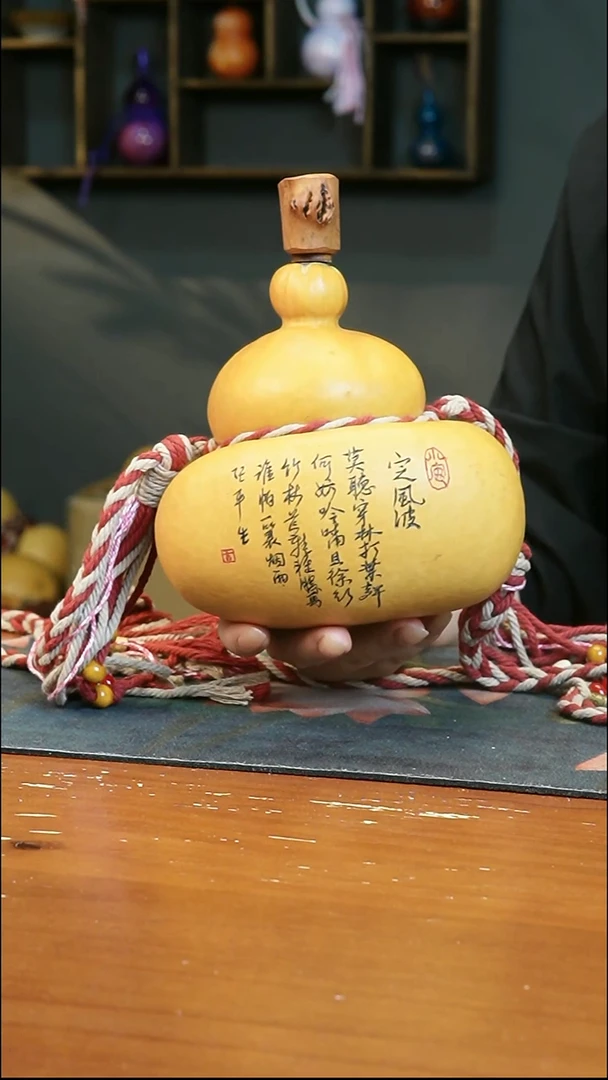 定風波
莫聽穿林打葉聲
何妨吟嘯且徐行
竹杖芒鞋輕勝馬
誰怕一蓑烟雨
任平生